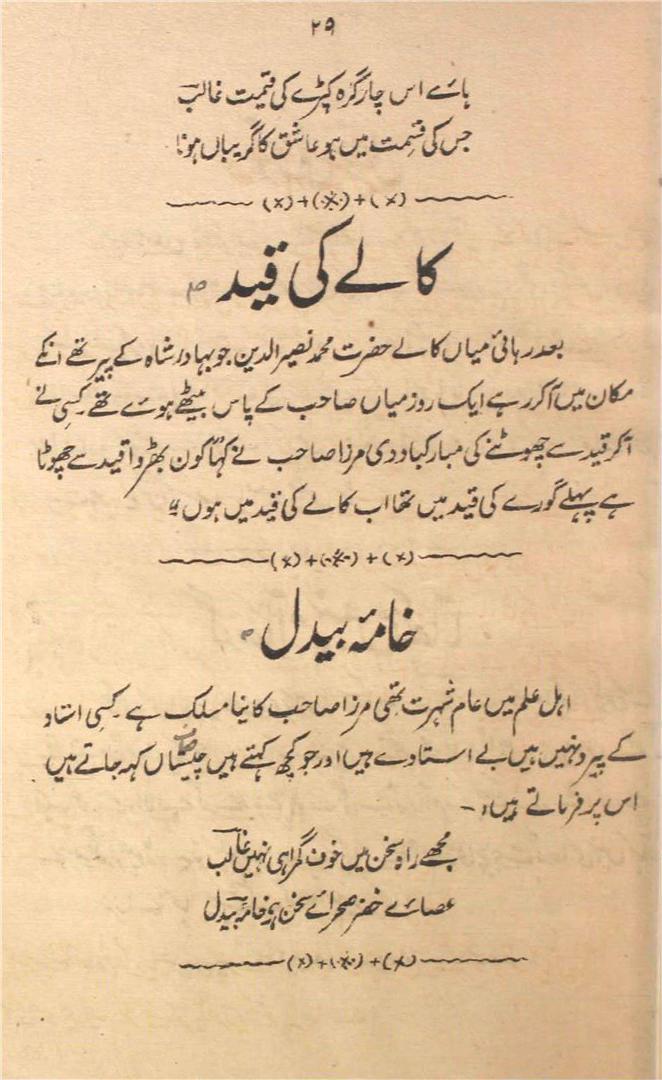 ۲۹
ہائے اس چار گرہ کپڑے کی قیمت غالب
جس کی قسمت میں ہو عاشق کا گریباں ہونا
کالے کی قید
بعد رہائی میاں کالے حضرت محمد نصیر الدین جو بہادر شاہ کے پیر تھے انکے
مکان میں آکر رہے ایک روز میاں صاحب کے پاس بیٹھے ہوے تھے۔ کسی نے
آکر قید سے چھوٹنے کی مبارکباد دی مرزا صاحب نے کہا "کون بھڑوا قید سے چھوٹا
ہے پہلے گورے کی قید میں تھا اب کالے کی قید میں ہوں"
خامۂ بیدل
اہل علم میں عام شہرت تھی مرزا صاحب کا نیا مسلک ہے۔ کسی استاد
کے پیرو نہیں ہیں بے استادے ہیں اور جو کچھ کہتے ہیں چیستاں کہہ جاتے ہیں
اس پر فرماتے ہیں:۔
مجھے راہ سخن میں خوف گمراہی نہیں غالب
عصائے خضر صحرائے سخن ہے خامہ بیدل